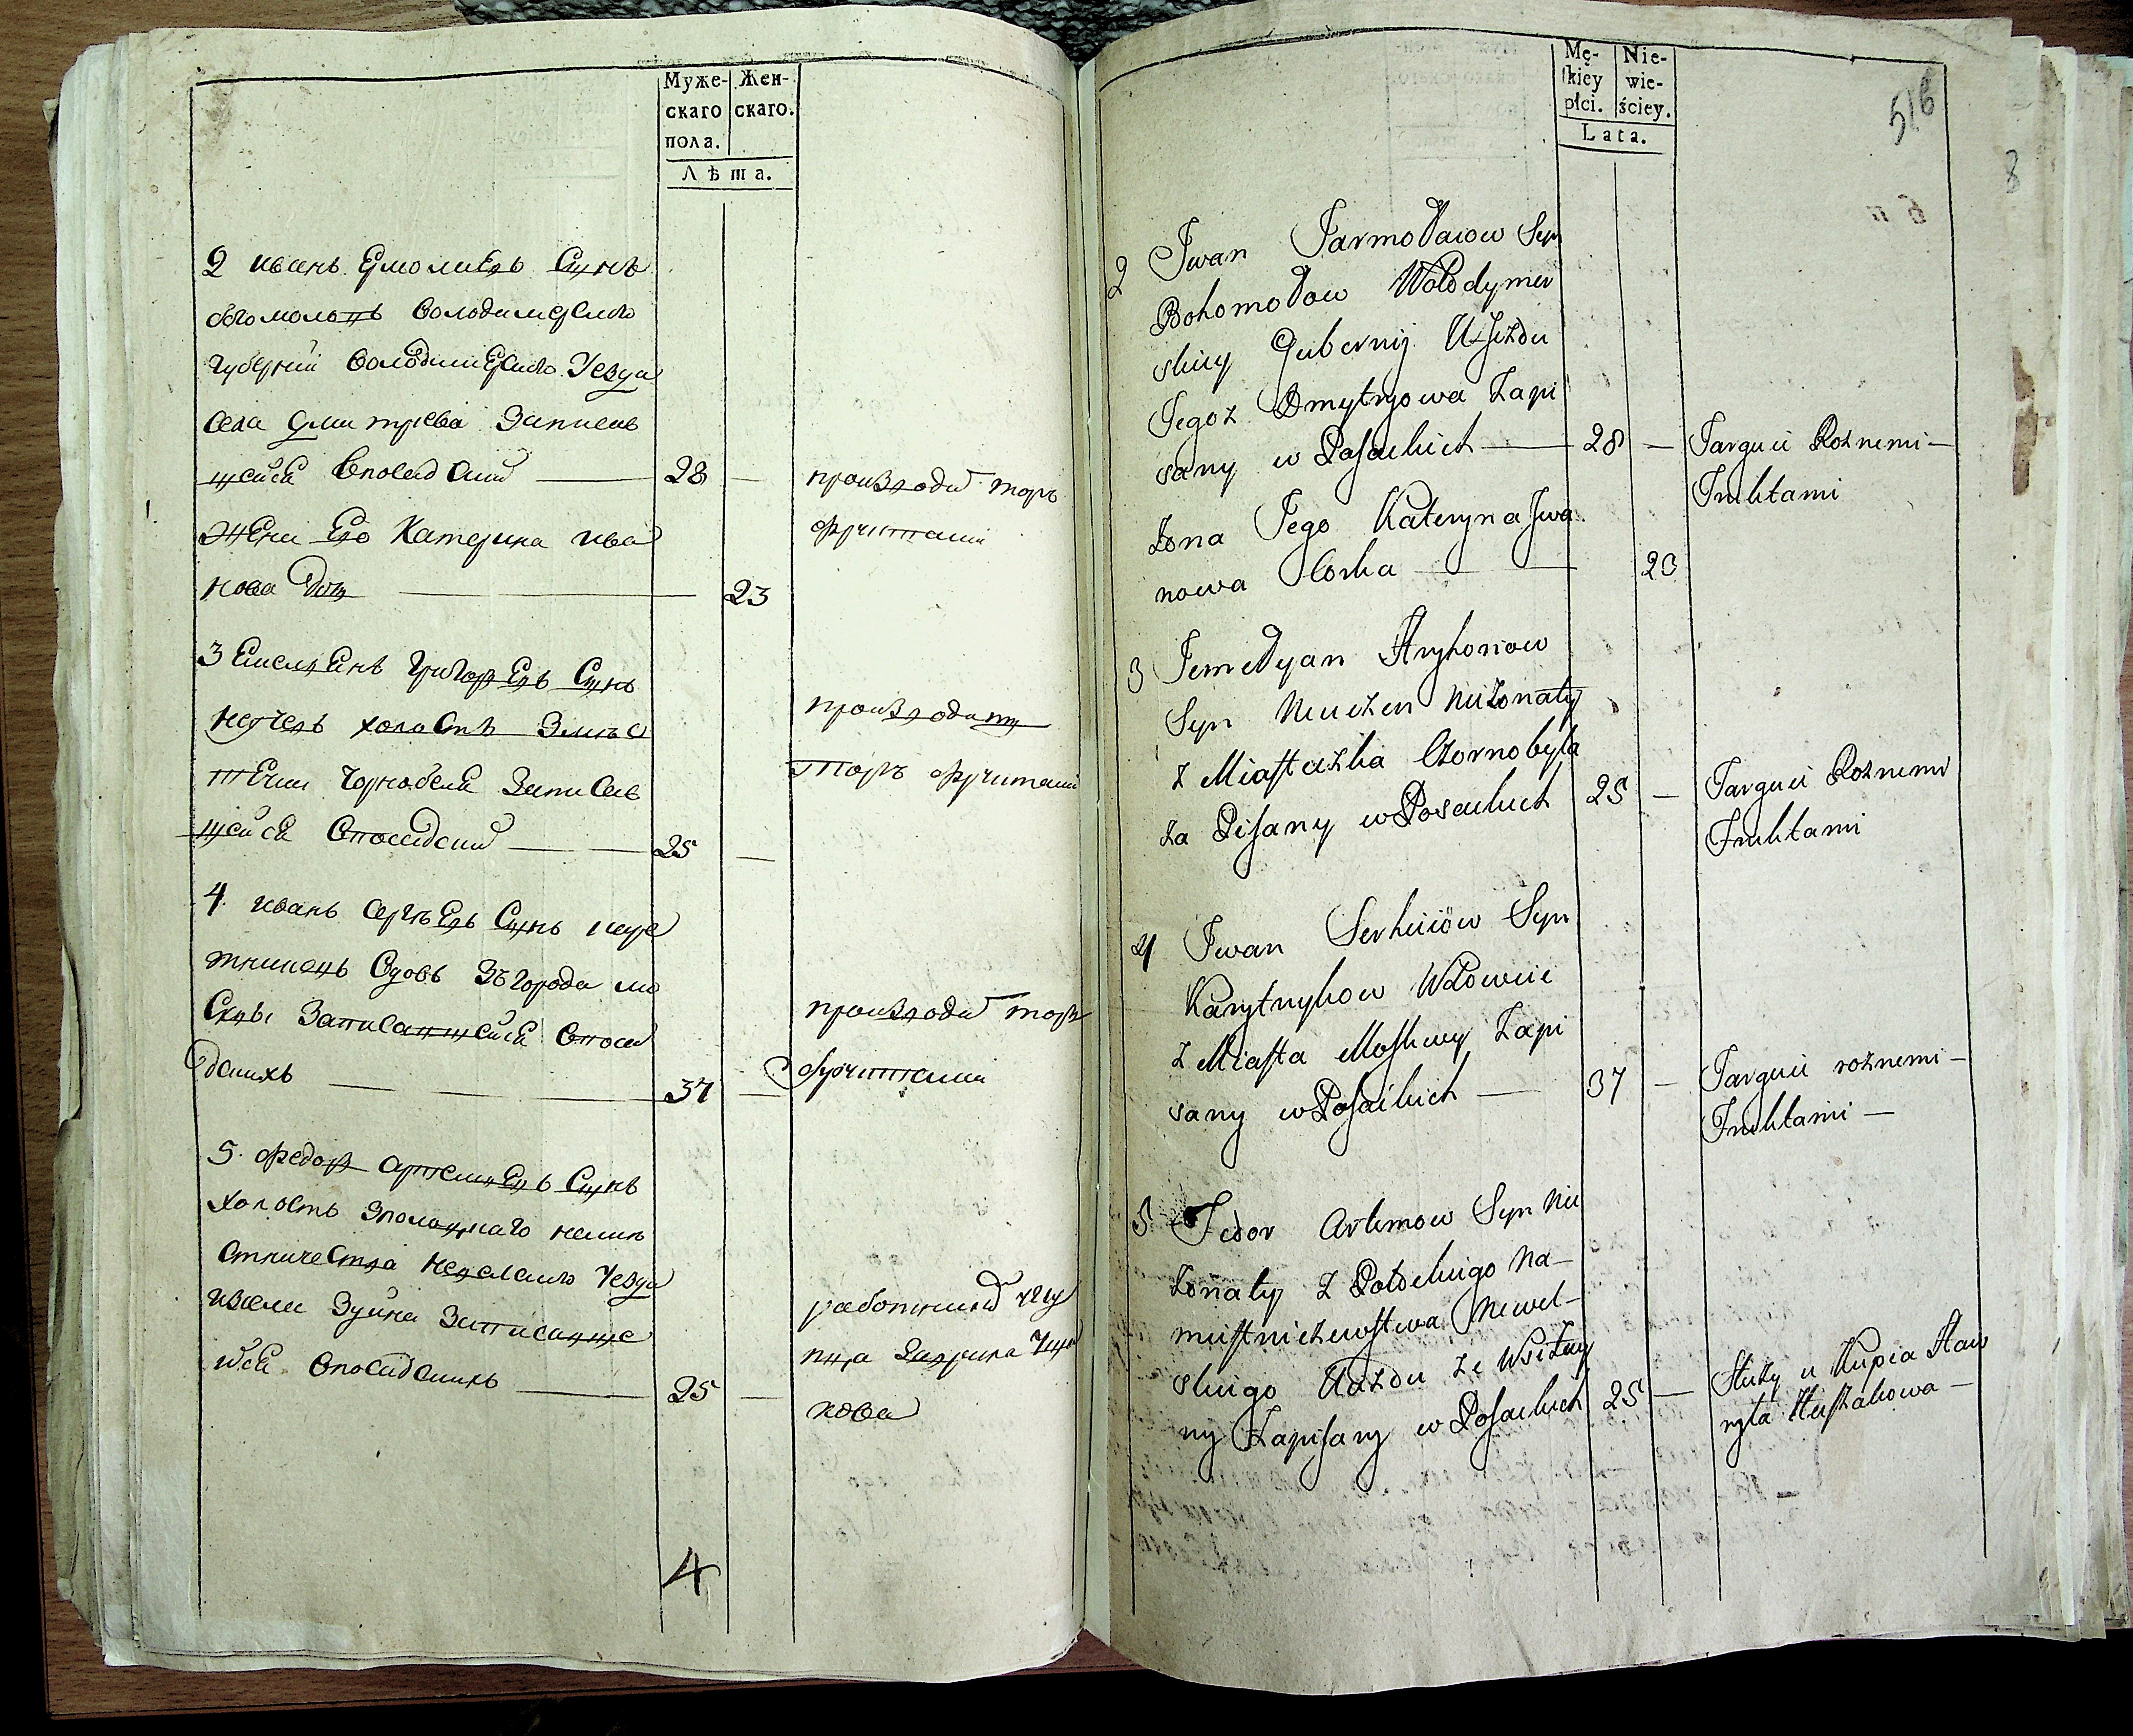 Муже-
скаго
пола.
Жен-
скаго.
Лѣта.
2 иванъ Ермолаевъ Сынъ
богомоловъ володимерской
губернии володимерского Уезда
села дмитриева Записав
щейся впосадские 28 —
производи торгъ
фруктами
жена Его Катерина ива
нова дочь 23
3 Емельянъ Григоревъ Сынъ
холостъ Змѣс
течка Чорнобеля Записав
щейся впосадские 25 —
производитъ
торгъ фруктами
4. иванъ Сергѣевъ Сынъ
вдовъ Зъ города мо
сквы Записавщейся впоса
дскихъ 37 —
производи торгъ
фруктами
5. Федоръ артемьевъ Сынъ
холостъ Зполоцкаго намѣ
стничества невелского Уезда
Записавше
йся впосадскихъ 25 —
работникъ у ку
пца
кова
4
Mę-
skiey
płci.
Nie-
wie-
ściey.
Lata.
516
8
2 Iwan Jarmołaiow Syn
Bohomołow Wołodymer
skiey Gubernij Ujezdu
Tegoz Dmytryowa Zapi
sany w Posackich — 28 — Targuie Roznemi —
Fruktami
Zona Jego Kateryna Iwa
nowa Corka — 23
3 Jemelyan Hryhoriow
Syn Nieżonaty
z Miasteczka Czornobyla
za Pisany w Posackich 25 — Targuie Roznemi
Fruktami
4 Iwan Serheiow Syn
Karytnykow Wdowiec
z Miasta Moskwy Zapi
sany w Posackich — 37 — Targuie roznemi —
Fruktami —
5 Fedor Artemow Syn Nie
Zonaty z Połockiego Na-
miestniczewstwa Newel-
skiego Uezdu ze
ny Zapisany w Posackich 25 — Służy u Kupca Haw
ryła